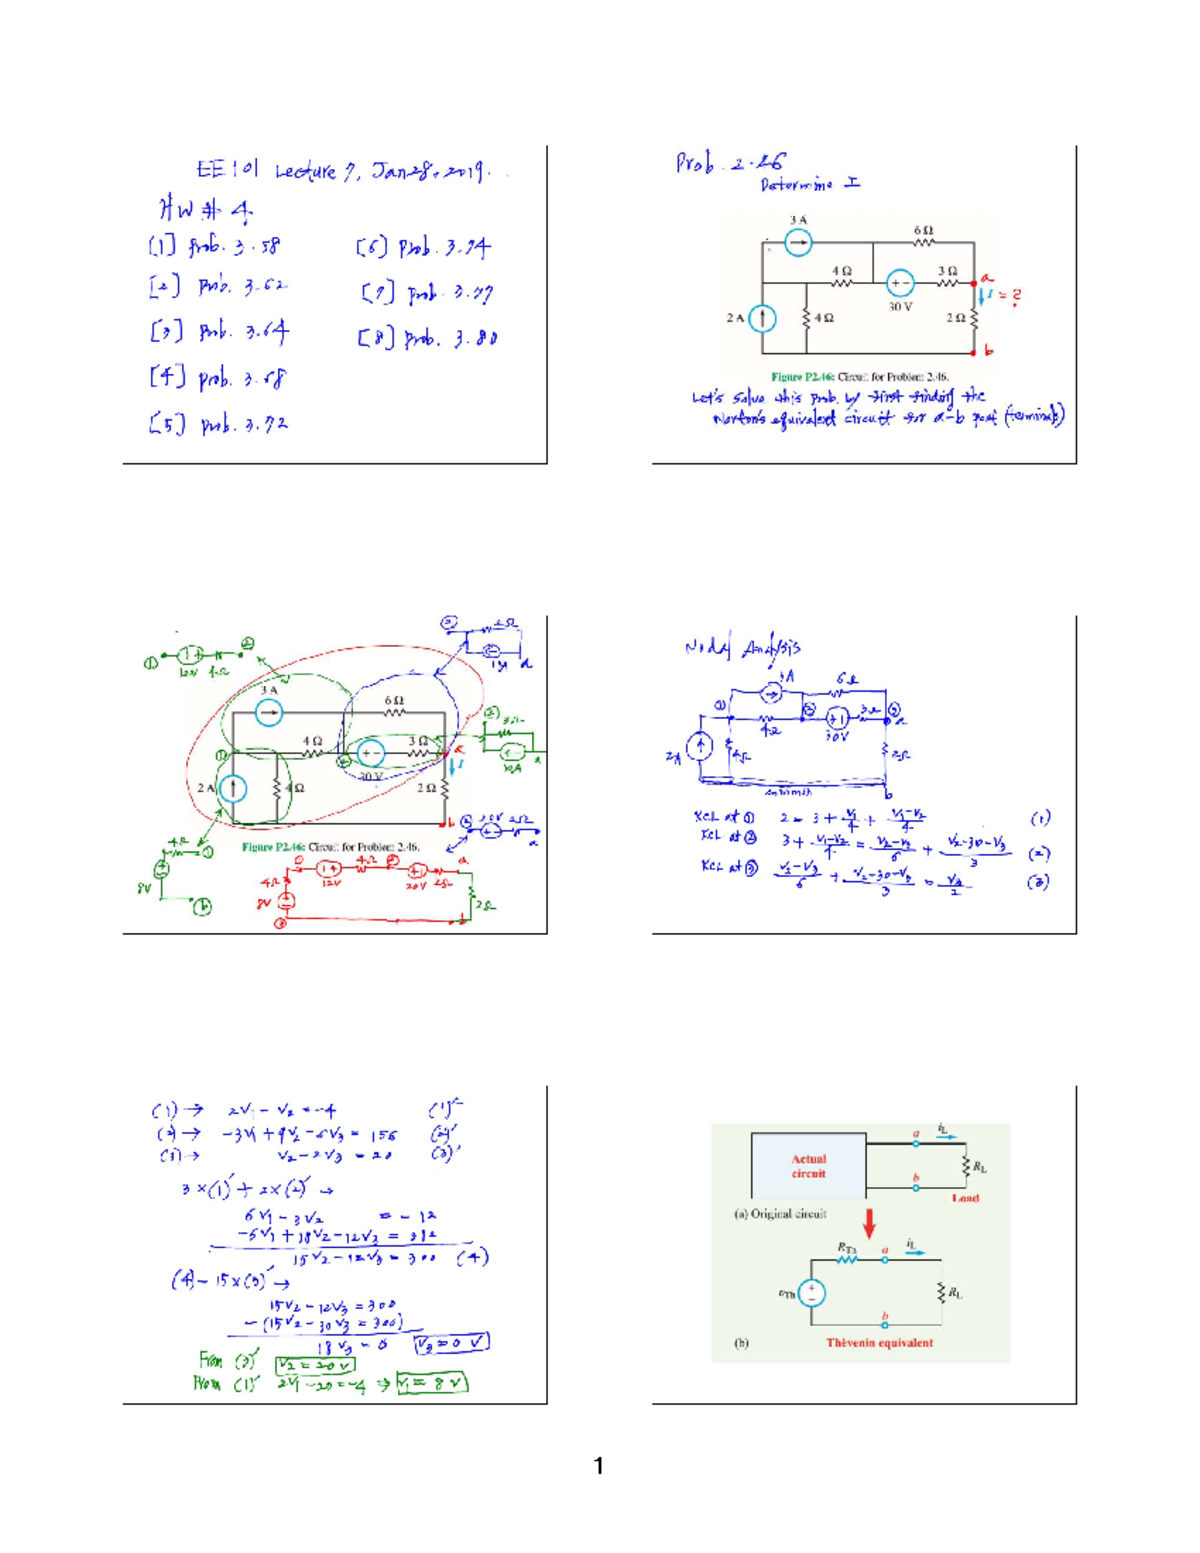 EE 101 Lecture 7, Jan 28, 2019.
HW # 4
[1] Prob. 3.58
[2] Prob. 3.62
[3] Prob. 3.64
[4] Prob. 3.68
[5] Prob. 3.72
[6] Prob. 3.74
[7] Prob. 3.77
[8] Prob. 3.80
Prob. 2.46
Determine I
3 A
6 Ω
4 Ω
3 Ω
a
I = ?
30 V
2 A
4 Ω
2 Ω
b
Figure P2.46: Circuit for Problem 2.46.
Let's solve this prob. by first finding the
Norton's equivalent circuit for a-b port (terminals)
2Ω
12V 4Ω
3 A
6 Ω
4 Ω
3 Ω
a
30 V
I
2 A
4 Ω
2 Ω
b
10A
Figure P2.46: Circuit for Problem 2.46.
4Ω
8V
20V 2Ω
4Ω
12V
4Ω
20V 2Ω
a
8V
2Ω
b
Nodal Analysis
3A
6Ω
4Ω
30V
3Ω
a
2A
4Ω
2Ω
b
KCL at ① 2 = 3 + V1/4 + (V1-V2)/4 (1)
KCL at ② 3 + (V1-V2)/4 = (V2-V3)/6 + (V2-30-V3)/3 (2)
KCL at ③ (V2-V3)/6 + (V2-30-V3)/3 = V3/2 (3)
(1) → 2V1 - V2 = -4 (1)'
(2) → -3V1 + 9V2 - 6V3 = 156 (2)'
(3) → V2 - 2V3 = 20 (3)'
3×(1)' + 2×(2)' →
6V1 - 3V2 = -12
-6V1 + 18V2 - 12V3 = 312
15V2 - 12V3 = 300 (4)
(4) - 15×(3)' →
15V2 - 12V3 = 300
-(15V2 - 30V3 = 300)
18V3 = 0 V3 = 0 V
From (3)' V2 = 20 V
From (1)' 2V1 - 20 = -4 → V1 = 8 V
Actual
circuit
a
iL
RL
b
Load
(a) Original circuit
RTh
a
iL
υTh
RL
b
(b)
Thévenin equivalent
1